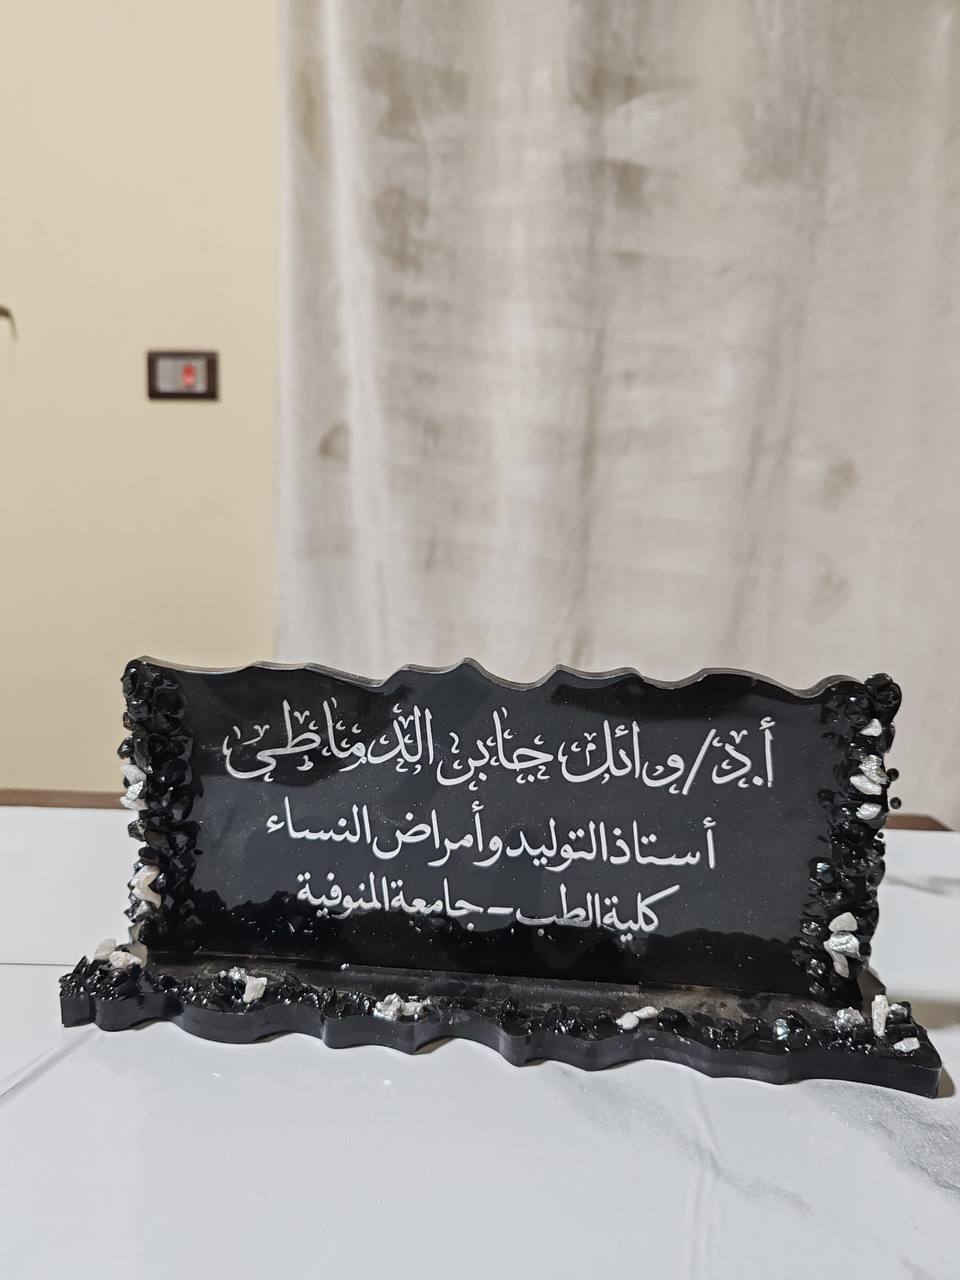 أ.د/وائل جابر الدماطى
أستاذ التوليد وأمراض النساء
كلية الطب - جامعة المنوفية